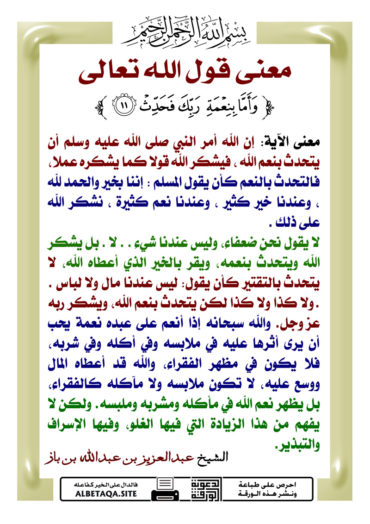 بسم الله الرحمن الرحيم
معنى قول الله تعالى
﴿ وَأَمَّا بِنِعْمَةِ رَبِّكَ فَحَدِّثْ ﴿١١﴾ ﴾
معنى الآية: إن الله أمر النبي صلى الله عليه وسلم أن
يتحدث بنعم الله ، فيشكر الله قولا كما يشكره عملا،
فالتحدث بالنعم كأن يقول المسلم : إننا بخير والحمد لله
، وعندنا خير كثير ، وعندنا نعم كثيرة ، نشكر الله
على ذلك .
لا يقول نحن ضعفاء، وليس عندنا شيء . . لا . بل يشكر
الله ويتحدث بنعمه، ويقر بالخير الذي أعطاه الله، لا
يتحدث بالتقتير كأن يقول: ليس عندنا مال ولا لباس .
.ولا كذا ولا كذا لكن يتحدث بنعم الله، ويشكر ربه
عز وجل. والله سبحانه إذا أنعم على عبده نعمة يحب
أن يرى أثرها عليه في ملابسه وفي أكله وفي شربه،
فلا يكون في مظهر الفقراء، والله قد أعطاه المال
ووسع عليه، لا تكون ملابسه ولا مأكله كالفقراء،
بل يظهر نعم الله في مأكله ومشربه وملبسه. ولكن لا
يفهم من هذا الزيادة التي فيها الغلو، وفيها الإسراف
والتبذير.
الشيخ عبدالعزيز بن عبدالله بن باز
احرص على طباعة
ونشر هذه الورقة
الدعوية
الورقة
فالدال على الخير كفاعله
ALBETAQA.SITE